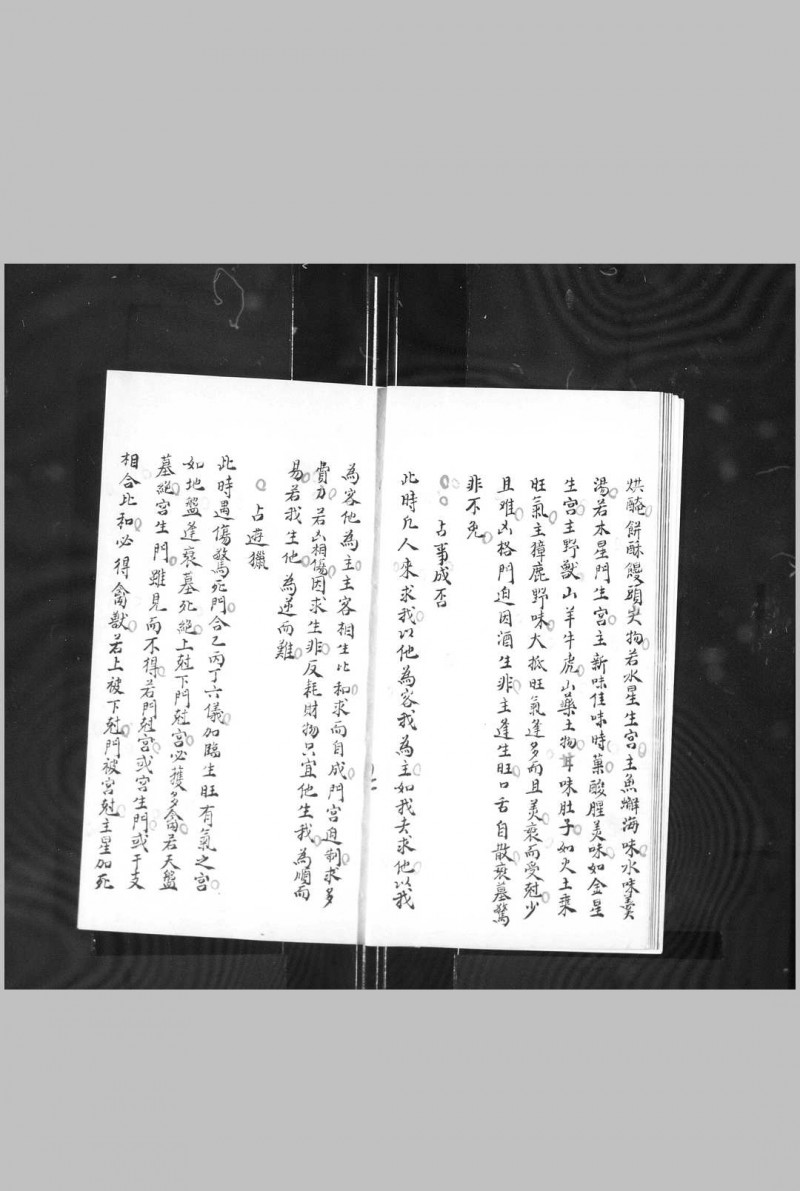 烘醃餅酥饅頭尖物若水星生宮主魚蠏海味水味羹
湯若木星門生宮主新味佳味時菓酸腥美味如金星
生宮主野獸山羊牛虎山藥土物其味肚子如火土乘
旺氣主獐鹿野味大抵旺氣逢多而且美衰而受尅少
且难凶格門迫因酒生非主逢生旺口舌自散衰墓驚
非不免
占事成否
此時凡人来求我以他為客我為主如我去求他以我
為客他為主主客相生比和求而自成門宮迫制求多
費力若凶相傷因求生非反耗財物只宜他生我為順而
易若我生他為逆而難
占遊獵
此時遇傷驚死門合乙丙丁六儀加臨生旺有氣之宮
如地盤逢衰墓死絕上尅下門尅宮必獲多禽若天盤
墓絕宮生門雖見而不得若門尅宮或宮生門或干支
相合比和必得禽獸若上被下尅門被宮尅主星加死